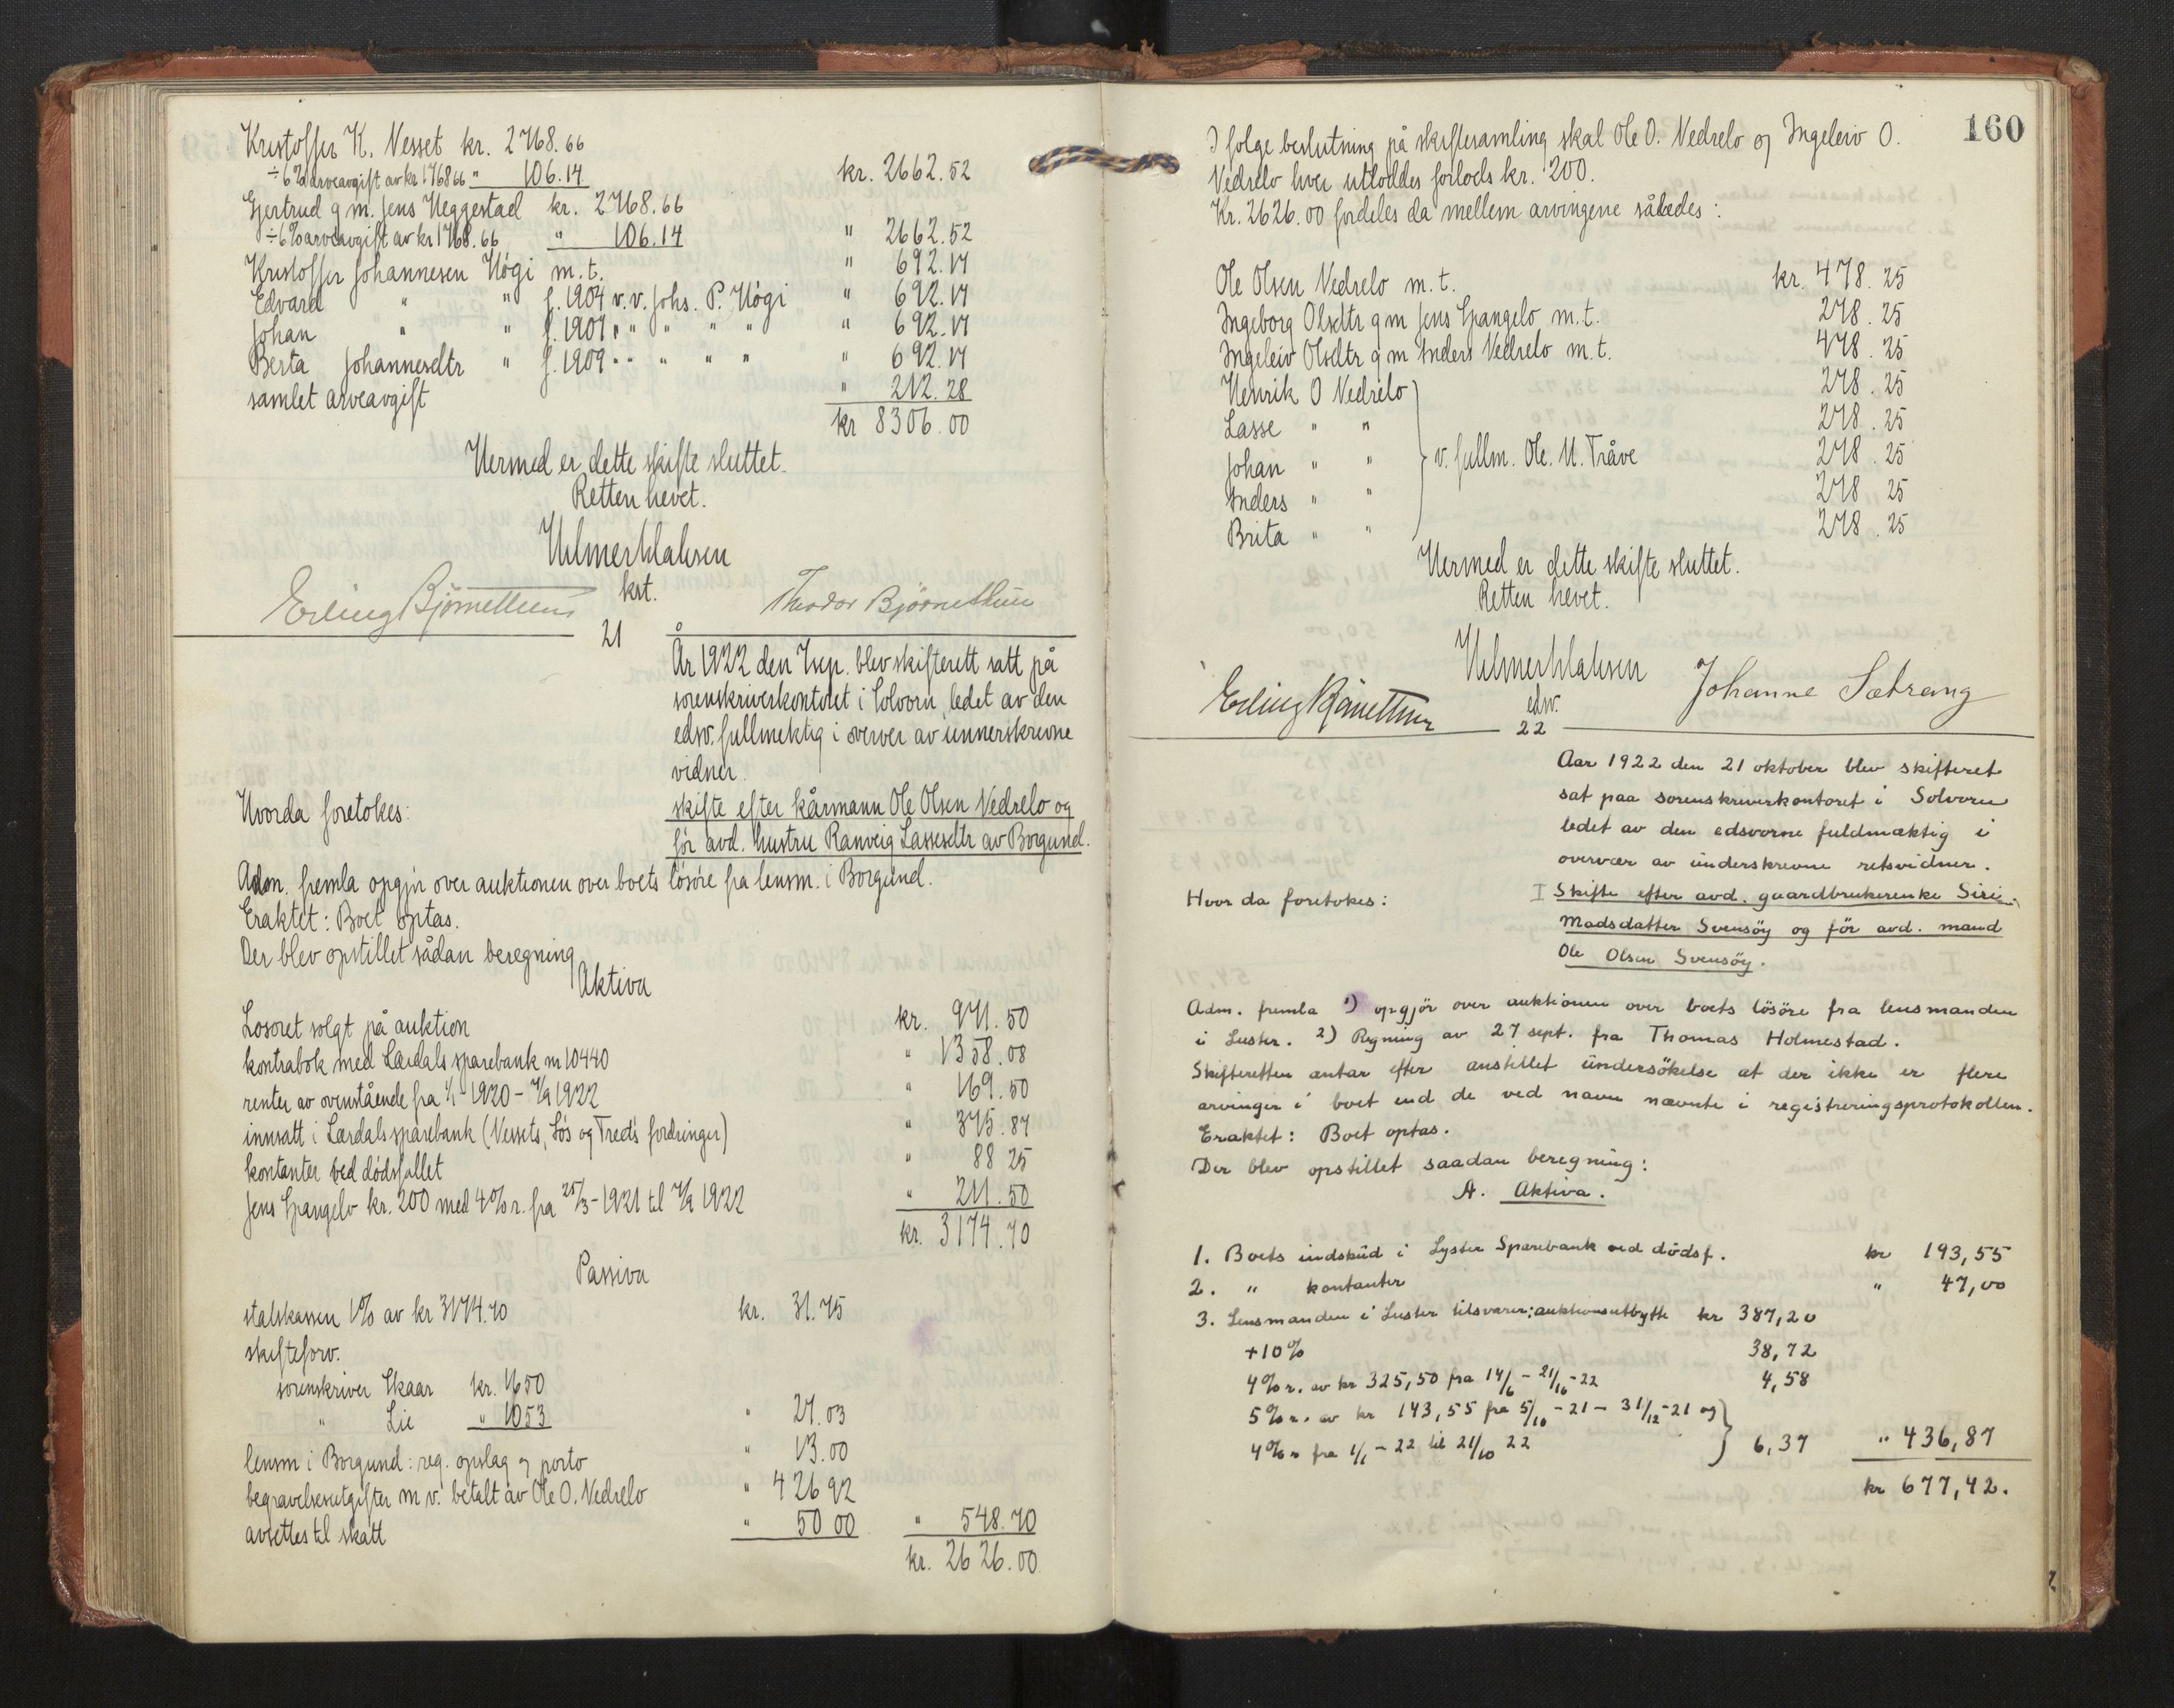 Kristoffer K. Nesset kr. 2768.66
÷ 6% arveavgift av kr 1768 66 " 106.14 kr. 2662.52
Gjertrud g m. Jens Heggestad kr. 2768.66
÷ 6% arveavgift av kr 1768.66 " 106.14 " 2662.52
Kristoffer Johannesen Högi m.t. " 692.17
Edvard " " f. 1904 v.v. Johs. P. Högi " 692.17
Johan " " f. 1907 " " " " " " 692.17
Berta Johannesdtr " f. 1909 " " " " " " 692.17
samlet arveavgift " 212.28
kr 8306.00
Hermed er dette skifte sluttet.
Retten hevet.
kst.
Erling Bjørnethun Theodor Bjørnethun
21
År 1922 den 7 sep. blev skifterett satt på
sorenskriverkontoret i Solvorn, ledet av den
edsv. fullmektig i overver av unnerskrevne
vidner.
Hvorda foretokes: skifte efter kårmann Ole Olsen Vedrelo og
för avd. hustru Ranveig Lassesdtr av Borgund.
Adm. fremla opgjör over auktionen over boets lösöre fra lensm. i Borgund.
Eraktet: Boet optas.
Der blev opstillet sådan beregning
Aktiva
Losoret solgt på auktion kr. 971.50
kontrabok med Lærdals sparebank nr 10440 " 1358.08
renter av ovenstående fra 1/1 1920 - 7/9 1922 " 169.50
innsatt i Lærdals sparebank (Nessets, Lös og Treds fordringer) " 375.87
kontanter ved dödsfallet " 88 25
Jens Spangelo kr. 200 med 4% r. fra 25/3 - 1921 til 7/9 1922 " 211.50
kr. 3174.70
Passiva
statskassen 1% av kr 3174.70 kr. 31.75
skifteforv.
sorenskriver Skaar kr. 16 50
" Lie " 10 53 " 27.03
lensm i Borgund: reg. opslag og porto " 13.00
begravelsesutgifter m v. betalt av Ole O. Vedrelo " 426 92
avsettes til skatt " 50 00 " 548.70
kr. 2626.00
160
I folge beslutning på skiftesamling skal Ole O. Vedrelo og Ingeleiv O.
Vedrelo hver utloddes forlods kr. 200.
Kr. 2626.00 fordeles da mellem arvingene således:
Ole Olsen Vedrelo m.t. kr. 478.25
Ingeborg Olsdtr g m Jens Spangelo m.t. 278.25
Ingeleiv Olsdtr g m Anders Vedrelo m.t. 478.25
Henrik O Vedrelo 278.25
Lasse " " 278.25
Johan " " v. fullm. Ole. H. Tråve 278.25
Anders " " 278.25
Brita " " 278.25
Hermed er dette skifte sluttet.
Retten hevet.
edsv.
Erling Bjørnethun Johanne Sætrang
22
Aar 1922 den 21 oktober blev skifteret
sat paa sorenskriverkontoret i Solvorn
ledet av den edsvorne fuldmæktig i
overvær av underskrevne retsvidner.
Hvor da foretokes: I Skifte efter avd. gaardbrukerenke Siri
Madsdatter Svensöy og för avd. mand
Ole Olsen Svensöy.
Adm. fremla 1) opgjör over auktionen over boets lösöre fra lensmanden
i Luster. 2) Regning av 27 sept. fra Thomas Holmestad.
Skifteretten antar efter anstillet undersökelse at der ikke er flere
arvinger i boet end de ved navn nævnte i registreringsprotokollen.
Eraktet: Boet optas.
Der blev opstillet saadan beregning:
A. Aktiva.
1. Boets indskud i Lyster Sparebank ved dödsf. kr 193,55
2. " kontanter " 47,00
3. Lensmanden i Luster tilsvarer: auktionsutbytte kr 387,20
+10% 38,72
4% r. av kr 325,50 fra 14/6 - 21/10 - 22 4,58
5% r. av kr 143,55 fra 5/10 - 21 - 31/12 - 21 og
4% " fra 1/1 - 22 til 21/10 22 6,37 " 436,87
kr 677,42.